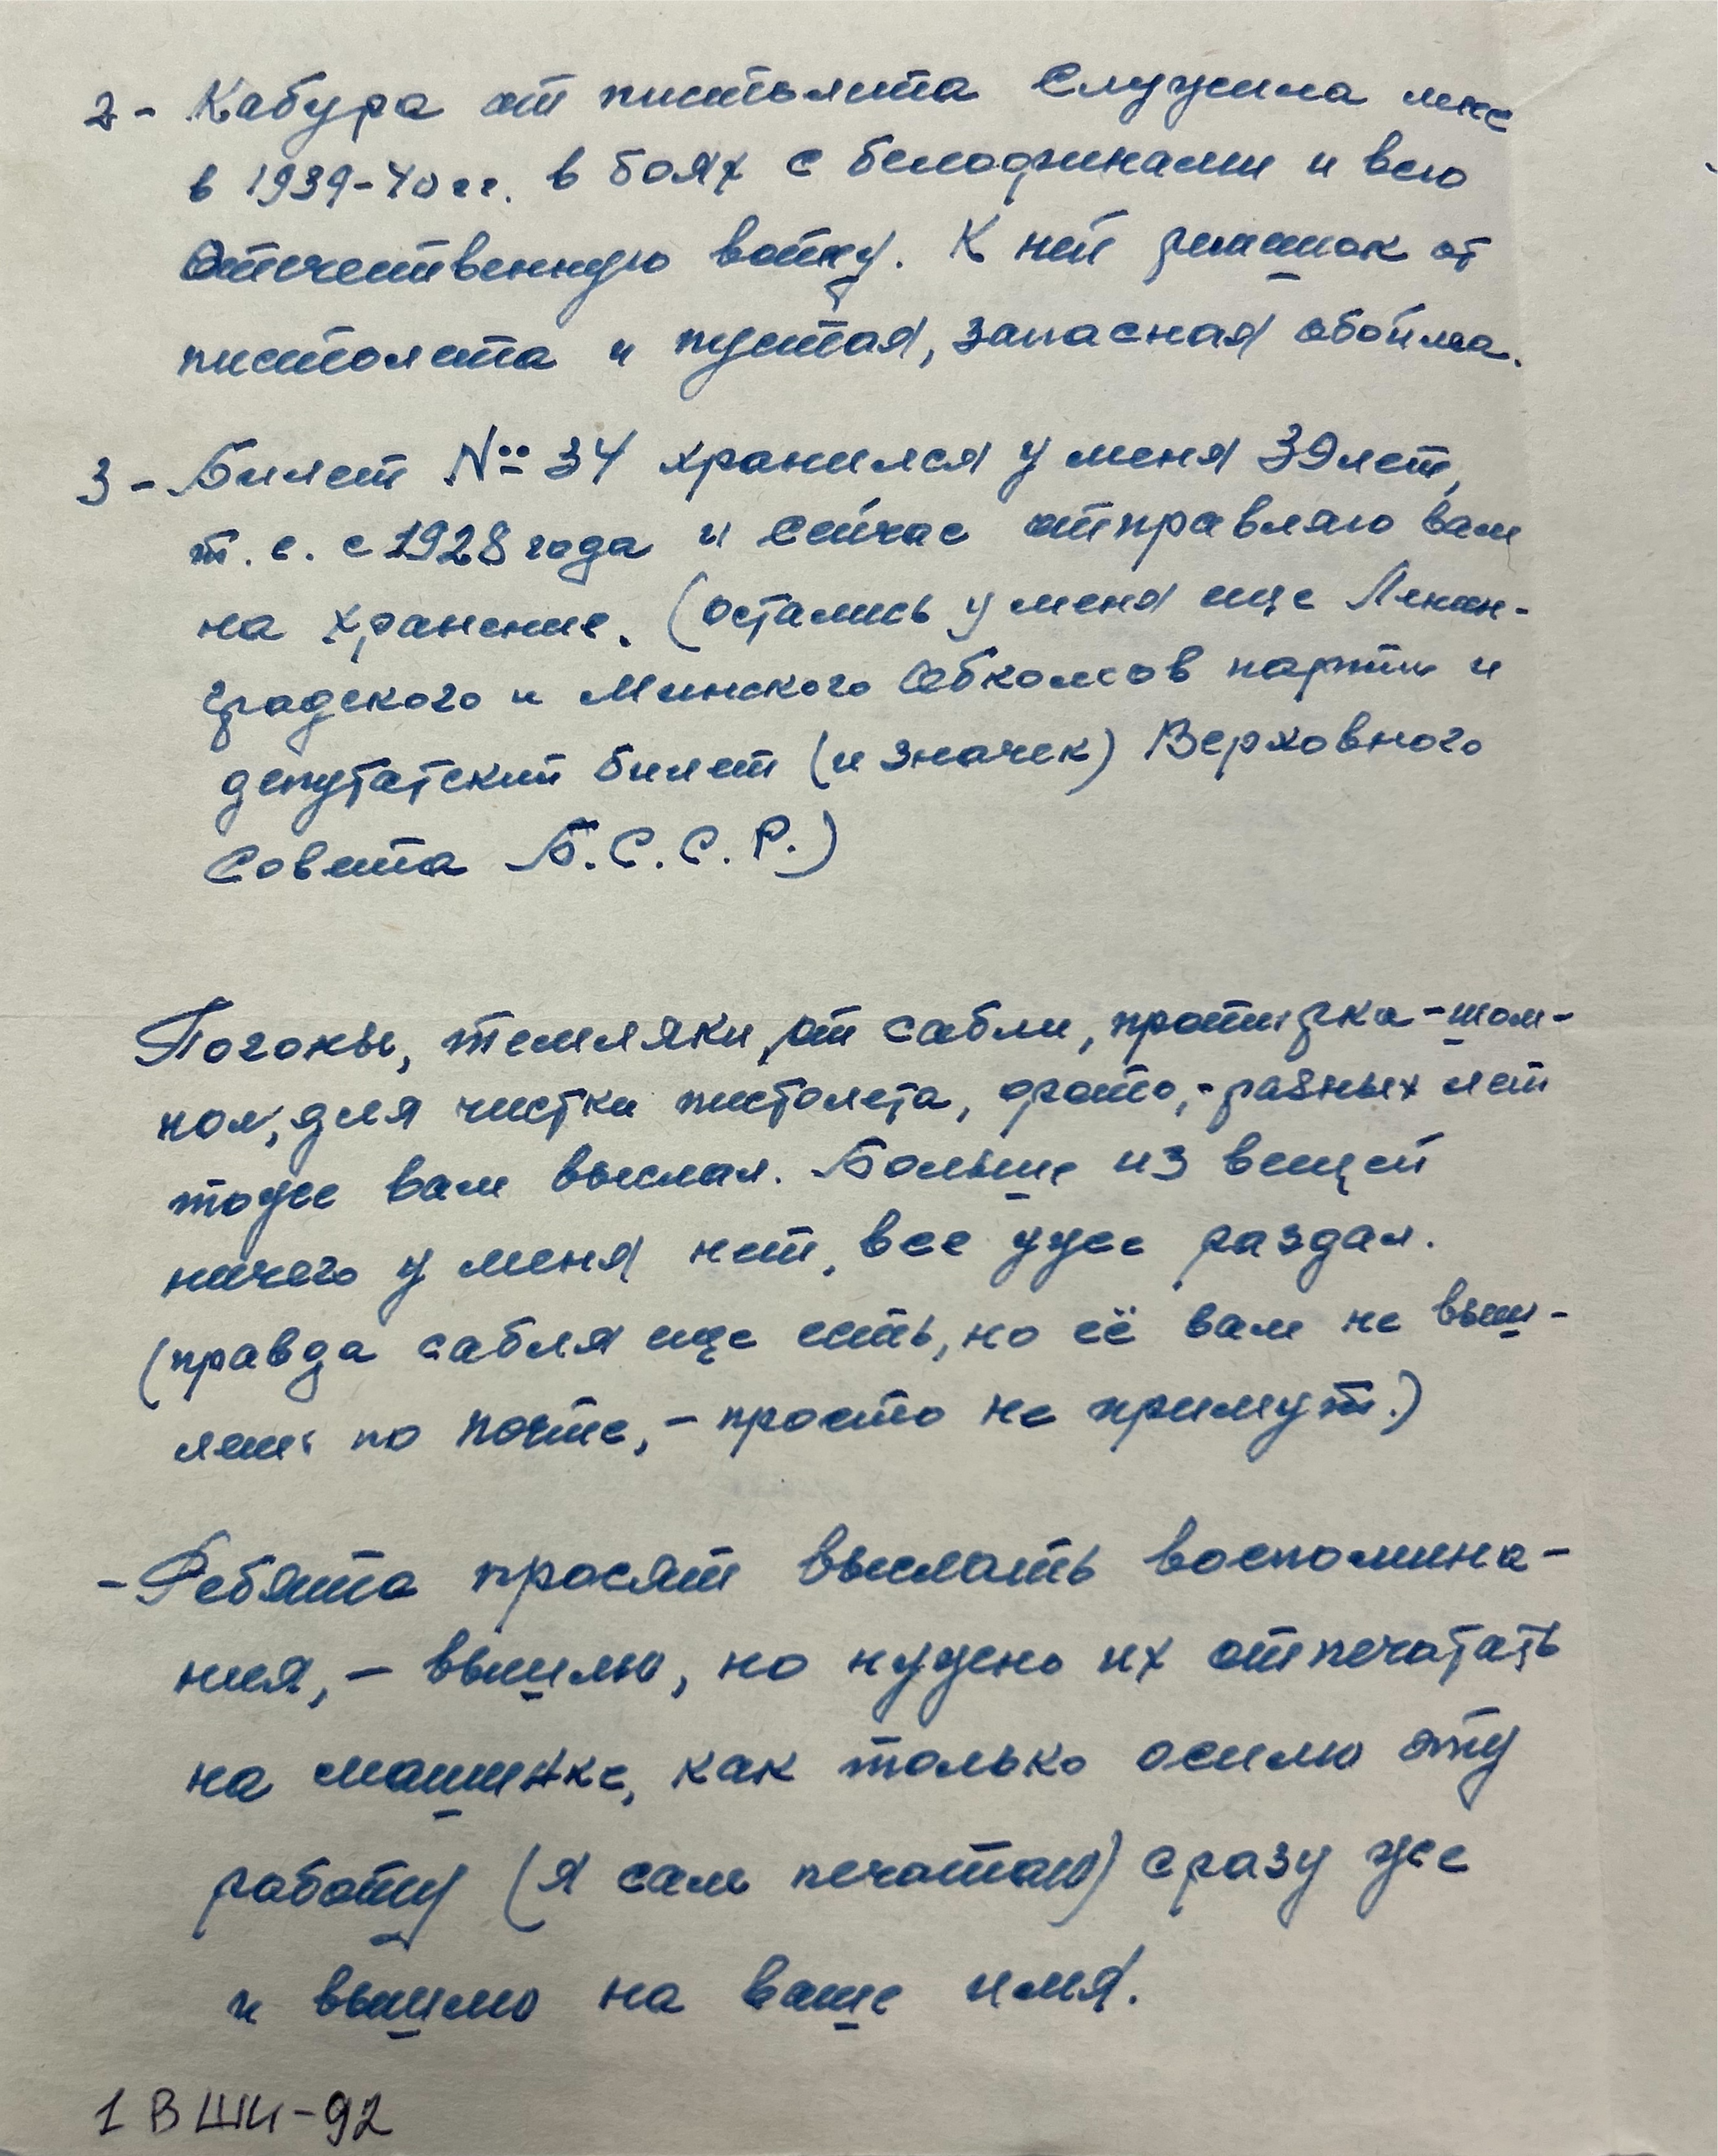 2 - Кабура от пистолета служила мне
в 1939-40 гг. в боях с белофинами и всю
Отечественную войну. К ней ремешок от
пистолета и пустая, запасная обойма.
3 - Билет № 34 хранился у меня 39 лет,
т. е. с 1928 года и сейчас отправляю вам
на хранение. (остались у меня еще Ленин-
градского и Минского Обкомов партии и
депутатский билет (и значек) Верховного
Совета Б.С.С.Р.)
Погоны, темляки, от сабли, протирка - шом-
пол, для чистки пистолета, фото, - разных лет
тоже вам выслал. Больше из вещей
ничего у меня нет, все уже раздал.
(правда сабля еще есть, но её вам не выш-
лешь по почте, - просто не примут.)
- Ребята просят выслать воспомина-
ния, - вышлю, но нужно их отпечатать
на машинке, как только осилю эту
работу (я сам печатаю) сразу же
и вышлю на ваше имя.
1 В ШИ-92